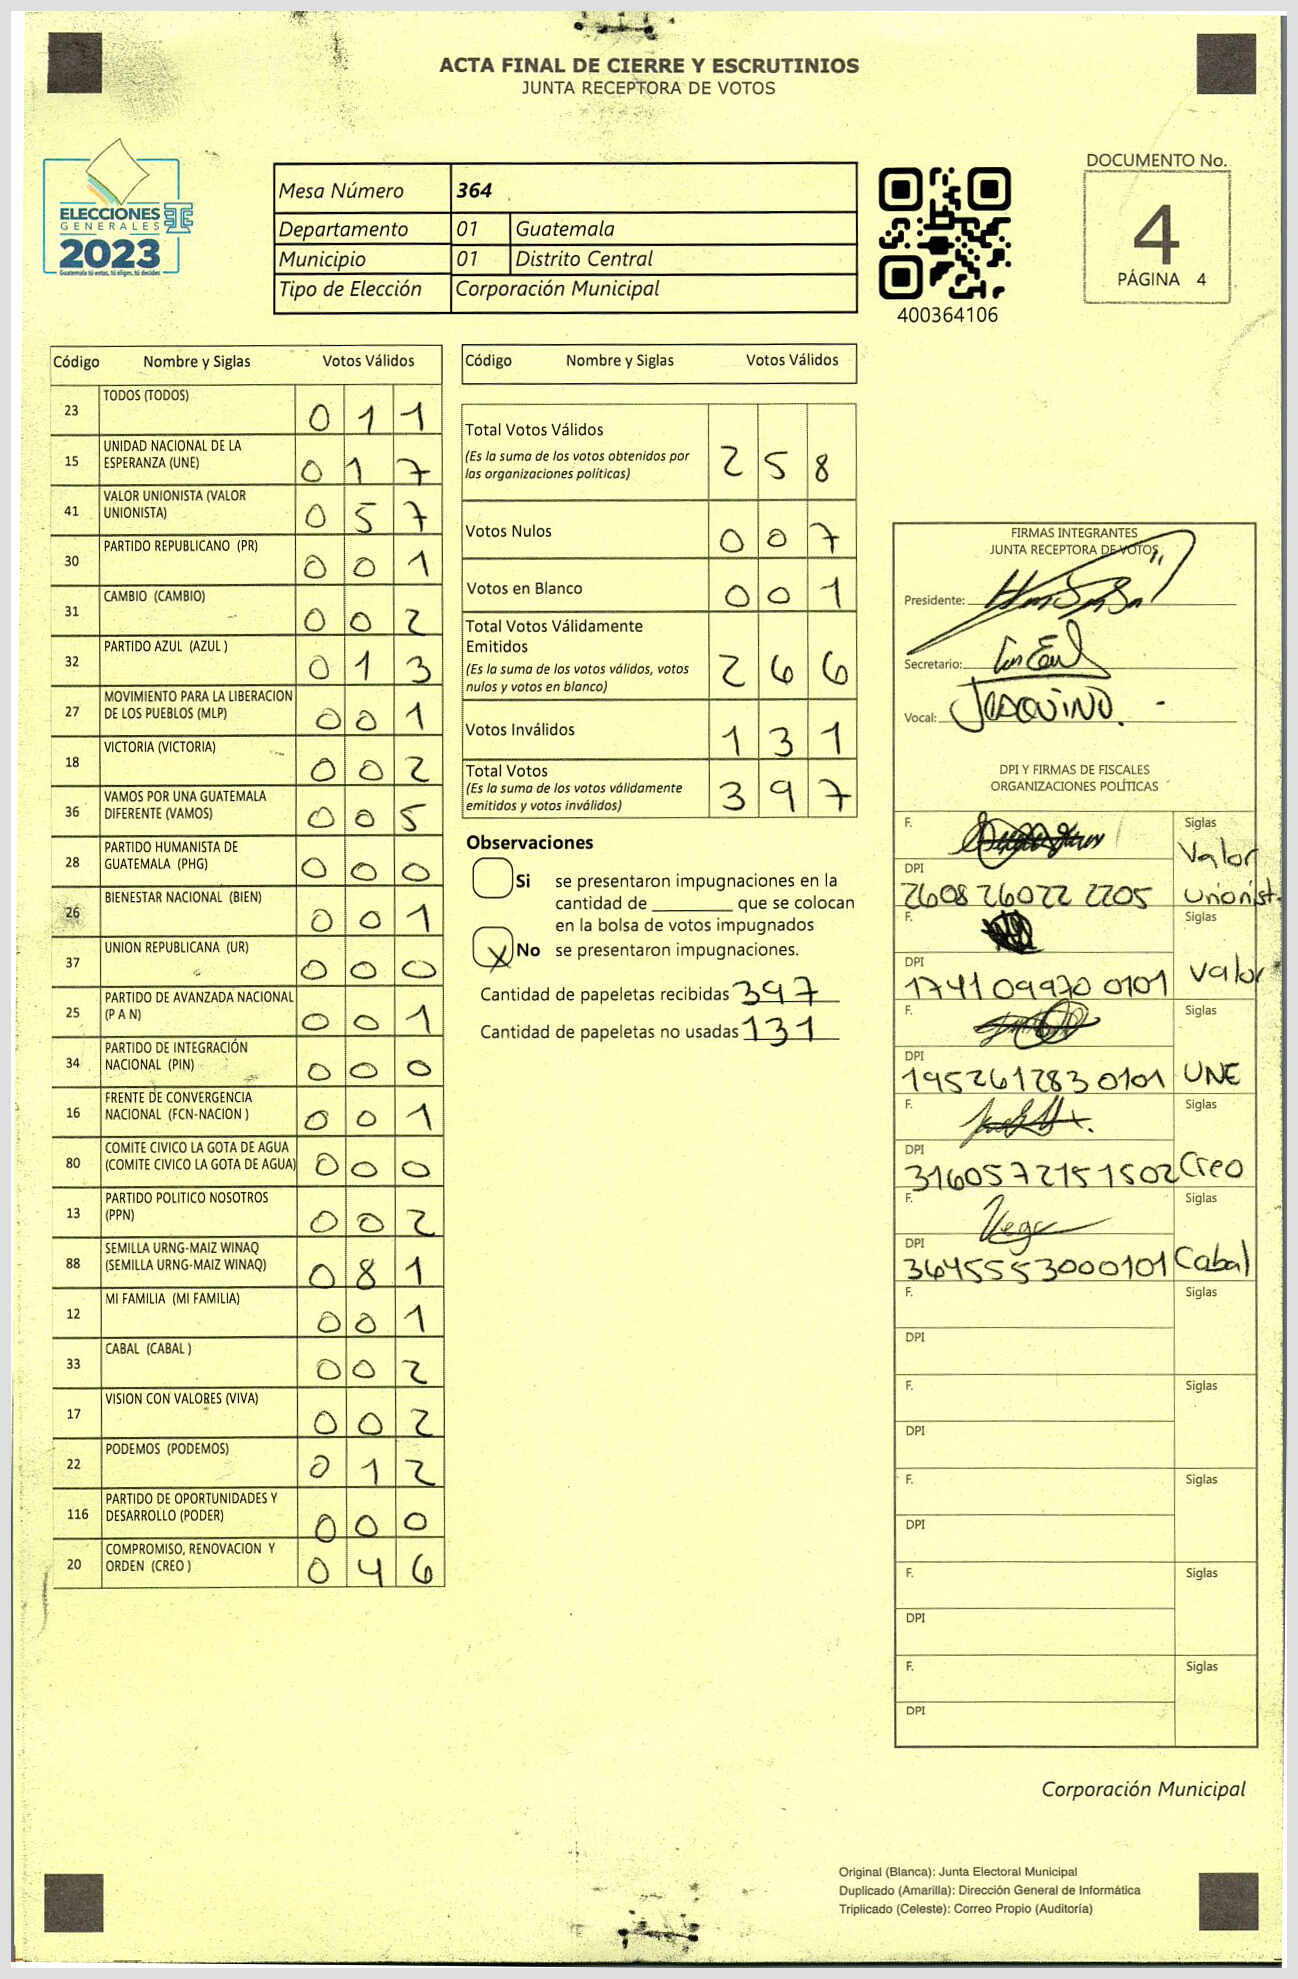 ACTA FINAL DE CIERRE Y ESCRUTINIOS
JUNTA RECEPTORA DE VOTOS
ELECCIONES
GENERALES
2023
Guatemala tú votas, tú eliges, tú decides
Mesa Número 364
Departamento 01 Guatemala
Municipio 01 Distrito Central
Tipo de Elección Corporación Municipal
400364106
DOCUMENTO No.
4
PÁGINA 4
Código Nombre y Siglas Votos Válidos
23 TODOS (TODOS) 0 1 1
15 UNIDAD NACIONAL DE LA
ESPERANZA (UNE) 0 1 7
41 VALOR UNIONISTA (VALOR
UNIONISTA) 0 5 7
30 PARTIDO REPUBLICANO (PR) 0 0 1
31 CAMBIO (CAMBIO) 0 0 2
32 PARTIDO AZUL (AZUL ) 0 1 3
27 MOVIMIENTO PARA LA LIBERACION
DE LOS PUEBLOS (MLP) 0 0 1
18 VICTORIA (VICTORIA) 0 0 2
36 VAMOS POR UNA GUATEMALA
DIFERENTE (VAMOS) 0 0 5
28 PARTIDO HUMANISTA DE
GUATEMALA (PHG) 0 0 0
26 BIENESTAR NACIONAL (BIEN) 0 0 1
37 UNION REPUBLICANA (UR) 0 0 0
25 PARTIDO DE AVANZADA NACIONAL
(P A N) 0 0 1
34 PARTIDO DE INTEGRACIÓN
NACIONAL (PIN) 0 0 0
16 FRENTE DE CONVERGENCIA
NACIONAL (FCN-NACION ) 0 0 1
80 COMITE CIVICO LA GOTA DE AGUA
(COMITE CIVICO LA GOTA DE AGUA) 0 0 0
13 PARTIDO POLITICO NOSOTROS
(PPN) 0 0 2
88 SEMILLA URNG-MAIZ WINAQ
(SEMILLA URNG-MAIZ WINAQ) 0 8 1
12 MI FAMILIA (MI FAMILIA) 0 0 1
33 CABAL (CABAL ) 0 0 2
17 VISION CON VALORES (VIVA) 0 0 2
22 PODEMOS (PODEMOS) 0 1 2
116 PARTIDO DE OPORTUNIDADES Y
DESARROLLO (PODER) 0 0 0
20 COMPROMISO, RENOVACION Y
ORDEN (CREO ) 0 4 6
Código Nombre y Siglas Votos Válidos
Total Votos Válidos
(Es la suma de los votos obtenidos por
las organizaciones políticas) 2 5 8
Votos Nulos 0 0 7
Votos en Blanco 0 0 1
Total Votos Válidamente
Emitidos
(Es la suma de los votos válidos, votos
nulos y votos en blanco) 2 6 6
Votos Inválidos 1 3 1
Total Votos
(Es la suma de los votos válidamente
emitidos y votos inválidos) 3 9 7
Observaciones
Si se presentaron impugnaciones en la
cantidad de ________ que se colocan
en la bolsa de votos impugnados
X No se presentaron impugnaciones.
Cantidad de papeletas recibidas 397
Cantidad de papeletas no usadas 131
FIRMAS INTEGRANTES
JUNTA RECEPTORA DE VOTOS
Presidente:
Secretario:
Vocal:
DPI Y FIRMAS DE FISCALES
ORGANIZACIONES POLÍTICAS
F. Siglas
Valor
Unionist.
DPI
2608 26022 2205
F. Siglas
Valor
DPI
1741 09970 0101
F. Siglas
UNE
DPI
1952612830101
F. Siglas
Creo
DPI
3160572151502
F. Vega Siglas
Cabal
DPI
3645553000101
F. Siglas
DPI
F. Siglas
DPI
F. Siglas
DPI
F. Siglas
DPI
F. Siglas
DPI
Corporación Municipal
Original (Blanca): Junta Electoral Municipal
Duplicado (Amarilla): Dirección General de Informática
Triplicado (Celeste): Correo Propio (Auditoría)